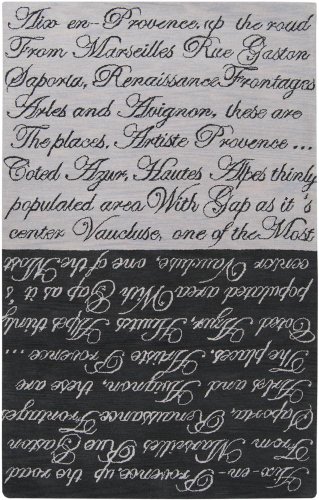 Aix en-Provence, up the road
From Marseilles Rue Gaston
Saporta, Renaissance Frontages
Arles and Avignon, these are
The places, Artiste Provence ...
Coted Azur, Hautes Alpes thinly
populated area With Gap as it's
center Vaucluse, one of the Most
Aix-en-Provence, up the road
From Marseilles Rue Gaston
Saporta, Renaissance Frontages
Arles and Avignon, these are
The places, Artiste Provence ...
Coted Azur, Hautes Alpes thinly
populated area With Gap as it's
center Vaucluse, one of the Most